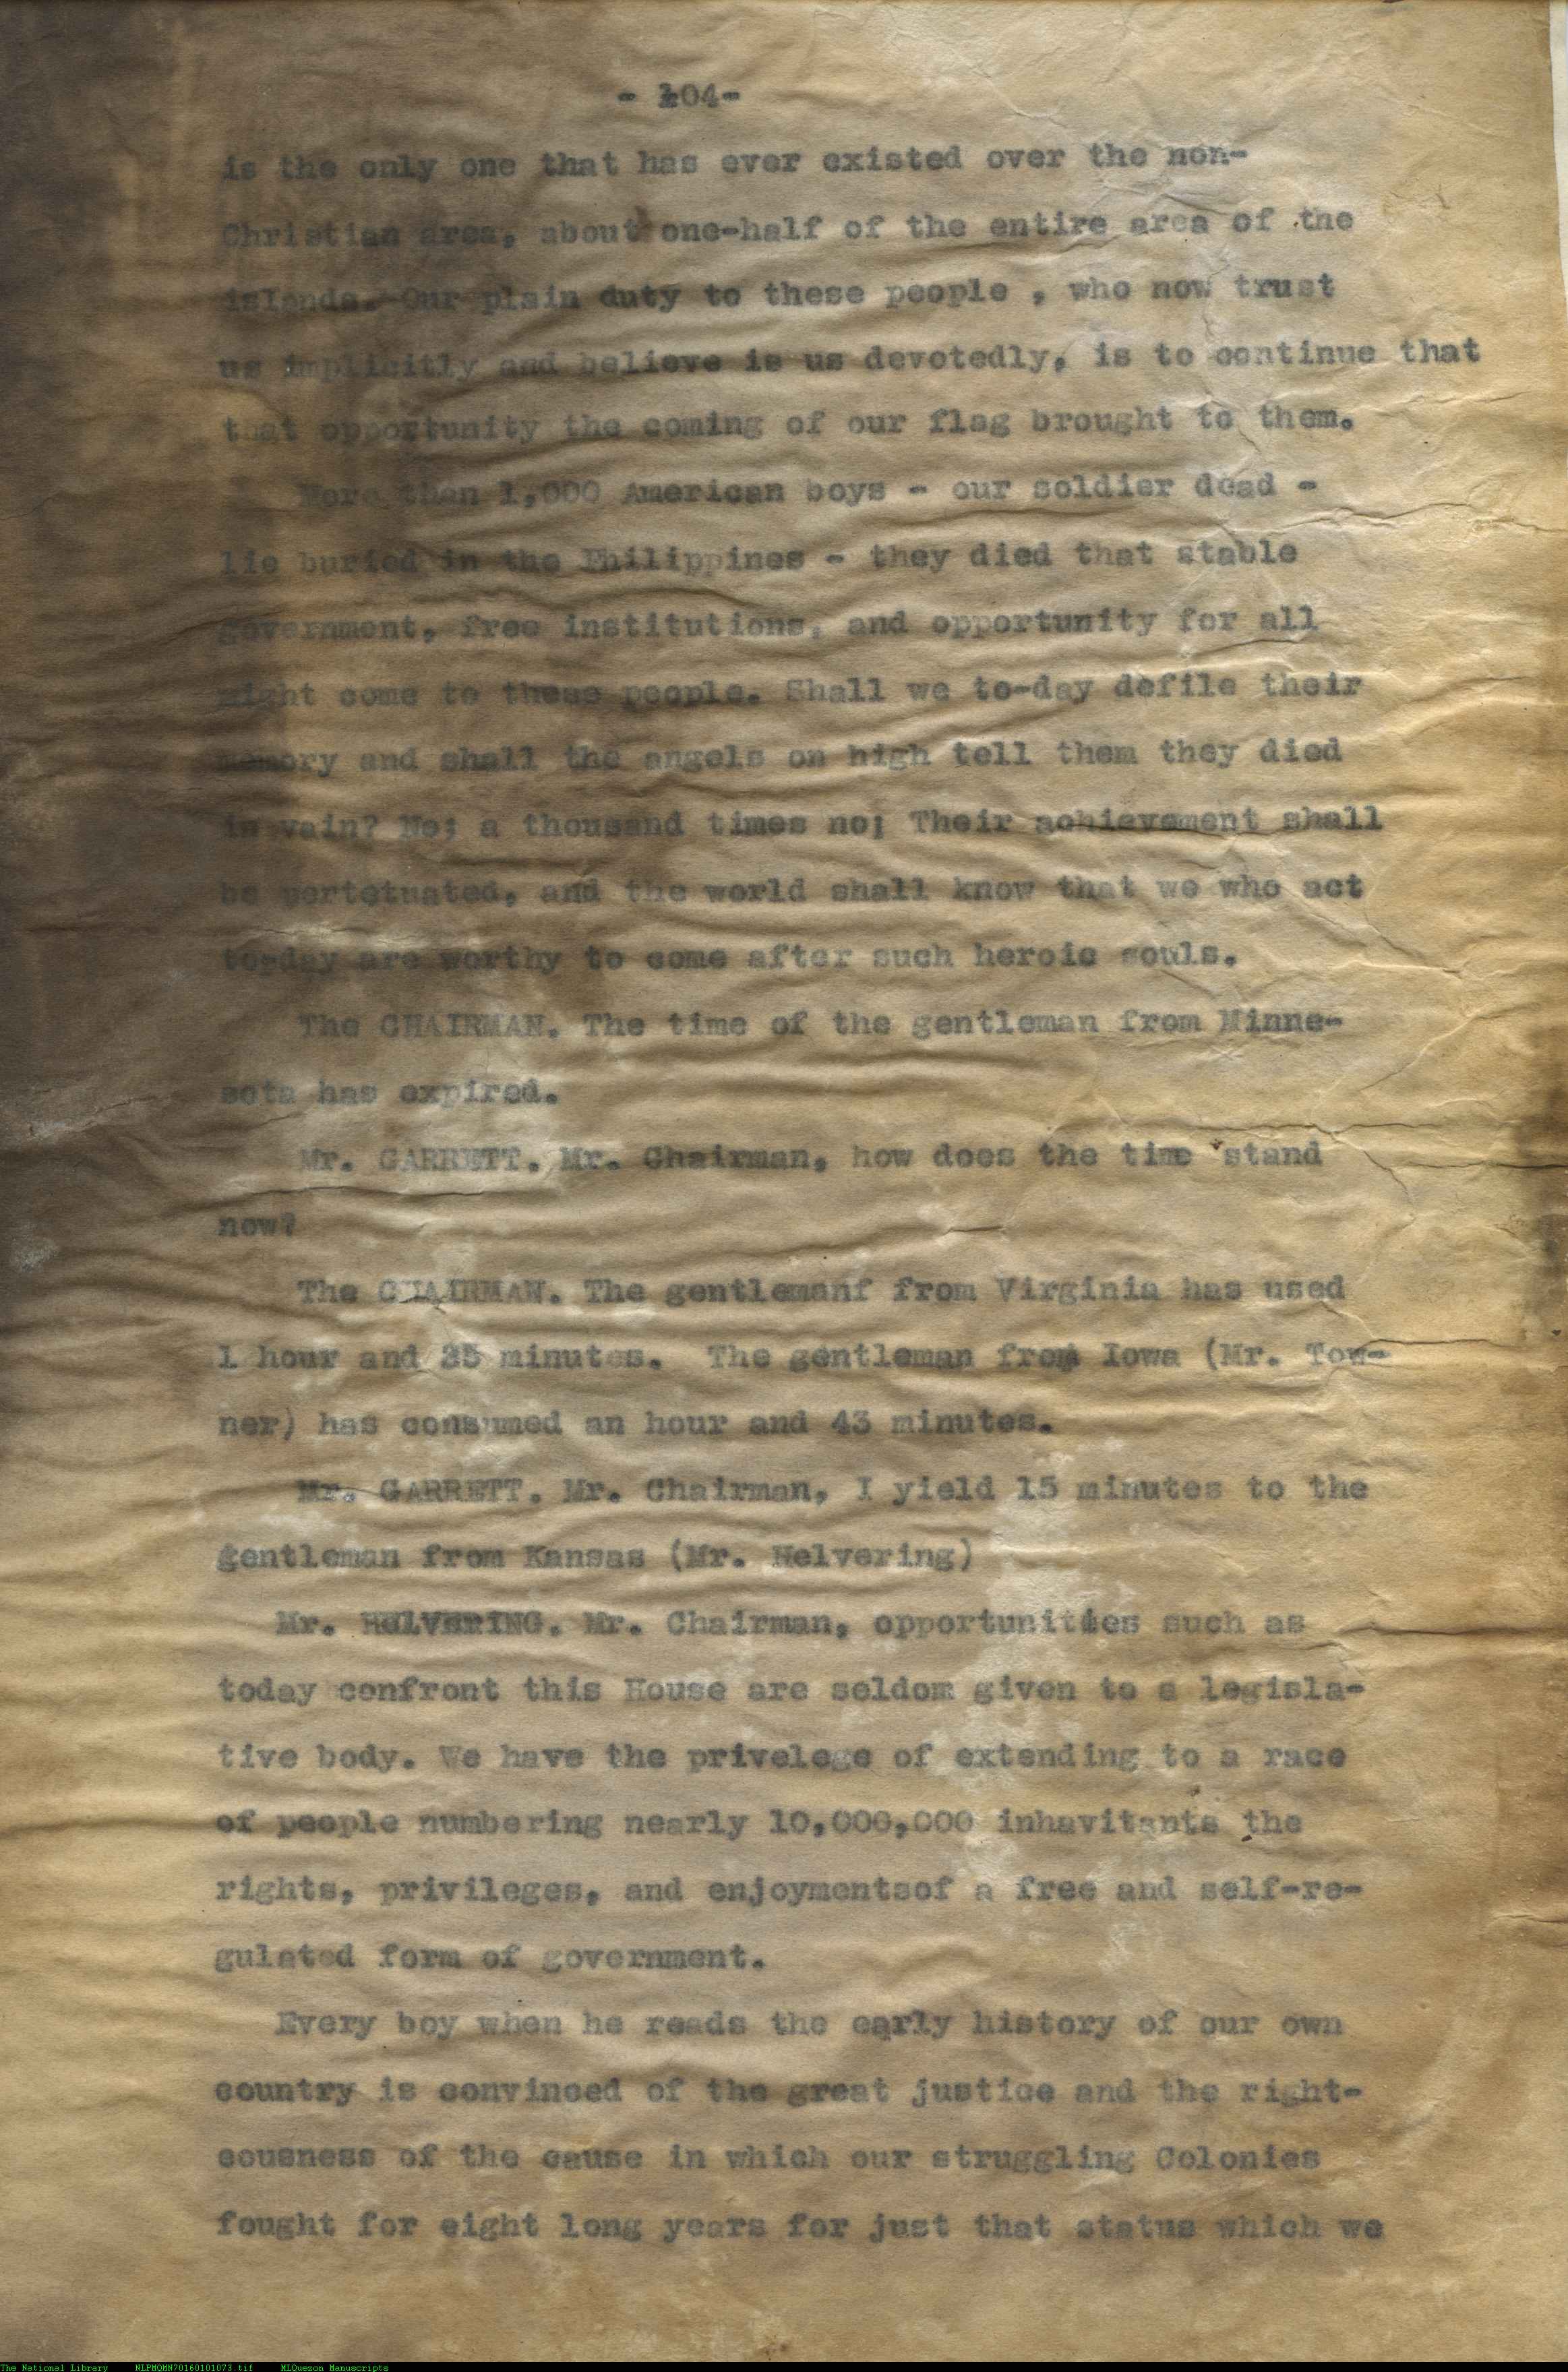 - 104-
is the only one that has ever existed over the non-
Christian area, about one-half of the entire area of the
islands. Our plain duty to these people , who now trust
us implicitly and believe is us devotedly, is to continue that
that opportunity the coming of our flag brought to them.
More than 1,000 American boys - our soldier dead -
lie buried in the Philippines - they died that stable
government, free institutions, and opportunity for all
might come to these people. Shall we to-day defile their
memory and shall the angels on high tell them they died
in vain? No; a thousand times no; Their achievement shall
be pertetuated, and the world shall know that we who act
to-day are worthy to come after such heroic souls.
The CHAIRMAN. The time of the gentleman from Minne-
sota has expired.
Mr. GARRETT. Mr. Chairman, how does the time stand
now?
The CHAIRMAN. The gentlemanf from Virginia has used
1 hour and 35 minutes. The gentleman from Iowa (Mr. Tow-
ner) has consumed an hour and 43 minutes.
Mr. GARRETT. Mr. Chairman, I yield 15 minutes to the
gentleman from Kansas (Mr. Helvering)
Mr. HELVERING. Mr. Chairman, opportunities such as
today confront this House are seldom given to a legisla-
tive body. We have the privelege of extending to a race
of people numbering nearly 10,000,000 inhavitants the
rights, privileges, and enjoymentsof a free and self-re-
gulated form of government.
Every boy when he reads the early history of our own
country is convinced of the great justice and the right-
eousness of the cause in which our struggling Colonies
fought for eight long years for just that status which we
The National Library NLPMQMN70160101073.tif MLQuezon Manuscripts